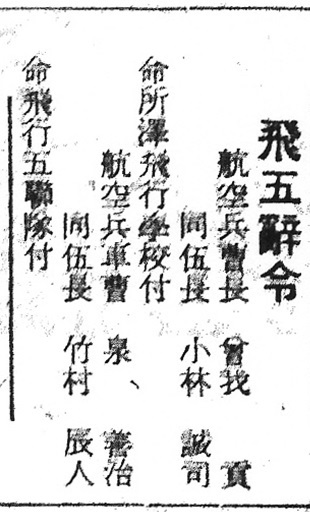 飛五辭令
航空兵曹長 曾我
同伍長 小林 誠司
命所澤飛行學校付
航空兵軍曹 泉 善治
同伍長 竹村 辰人
命飛行五聯隊付